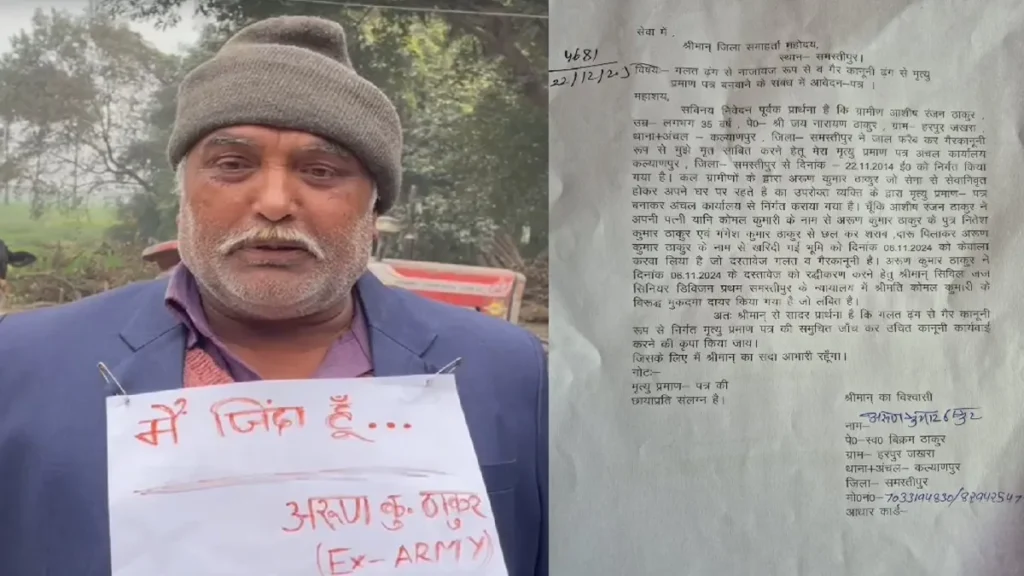 मैं जिंदा हूँ...
अरूण कु. ठाकुर
(Ex-ARMY)
सेवा में,
श्रीमान् जिला समाहर्ता महोदय,
स्थान- समस्तीपुर।
4681
22/12/25
विषयः- गलत ढ़ंग से नाजायज रूप से व गैर कानूनी ढंग से मृत्यु
प्रमाण पत्र बनवाने के संबंध में आवेदन-पत्र ।
महाशय,
सविनय निवेदन पूर्वक प्रार्थना है कि ग्रामीण आशीष रंजन ठाकुर,
उम्र- लगभग 35 वर्ष, पे०- श्री जय नारायण ठाकुर, ग्राम- हरपुर जखरा,
थाना+अंचल - कल्याणपुर, जिला- समस्तीपुर ने जाल फरेब कर गैरकानूनी
रूप से मुझे मृत साबित करने हेतु मेरा मृत्यु प्रमाण पत्र अंचल कार्यालय
कल्याणपुर, जिला- समस्तीपुर से दिनांक - 22.11.2014 ई० को निर्गत किया
गया है। कल ग्रामीणों के द्वारा अरूण कुमार ठाकुर जो सेना से सेवानिवृत
होकर अपने घर पर रहते है का उपरोक्त व्यक्ति के द्वारा मृत्यु प्रमाण- पत्र
बनाकर अंचल कार्यालय से निर्गत कराया गया है। चूँकि आशीष रंजन ठाकुर ने
अपनी पत्नी यानि कोमल कुमारी के नाम से अरूण कुमार ठाकुर के पुत्र नितेश
कुमार ठाकुर एवं गंगेश कुमार ठाकुर से छल कर शराब ,दारू पिलाकर अरूण
कुमार ठाकुर के नाम से खरिदी गई भूमि को दिनांक 06.11.2024 को केवाला
करवा लिया है जो दस्तावेज गलत व गैरकानूनी है। अरूण कुमार ठाकुर ने
दिनांक 06.11.2024 के दस्तावेज को रद्दीकरण करने हेतु श्रीमान् सिविल जज
सिनियर डिविजन प्रथम समस्तीपुर के न्यायालय में श्रीमति कोमल कुमारी के
विरुद्ध मुकदमा दायर किया गया है जो लंबित है।
अतः श्रीमान् से सादर प्रार्थना है कि गलत ढ़ंग से गैर कानूनी
रूप से निर्गत मृत्यु प्रमाण पत्र की समुचित जाँच कर उचित कानूनी कार्यवाई
करने की कृपा किया जाय।
जिसके लिए मैं श्रीमान् का सदा आभारी रहूँगा।
नोटः-
मृत्यु प्रमाण- पत्र की
छायाप्रति संलग्न है।
श्रीमान् का विश्वासी
नाम- अरूण कुमार ठाकुर
पे०-स्व० बिक्रम ठाकुर
ग्राम- हरपुर जखरा
थाना+अंचल- कल्याणपुर
जिला- समस्तीपुर
मो०न०-7033194830/
आधार कार्ड-